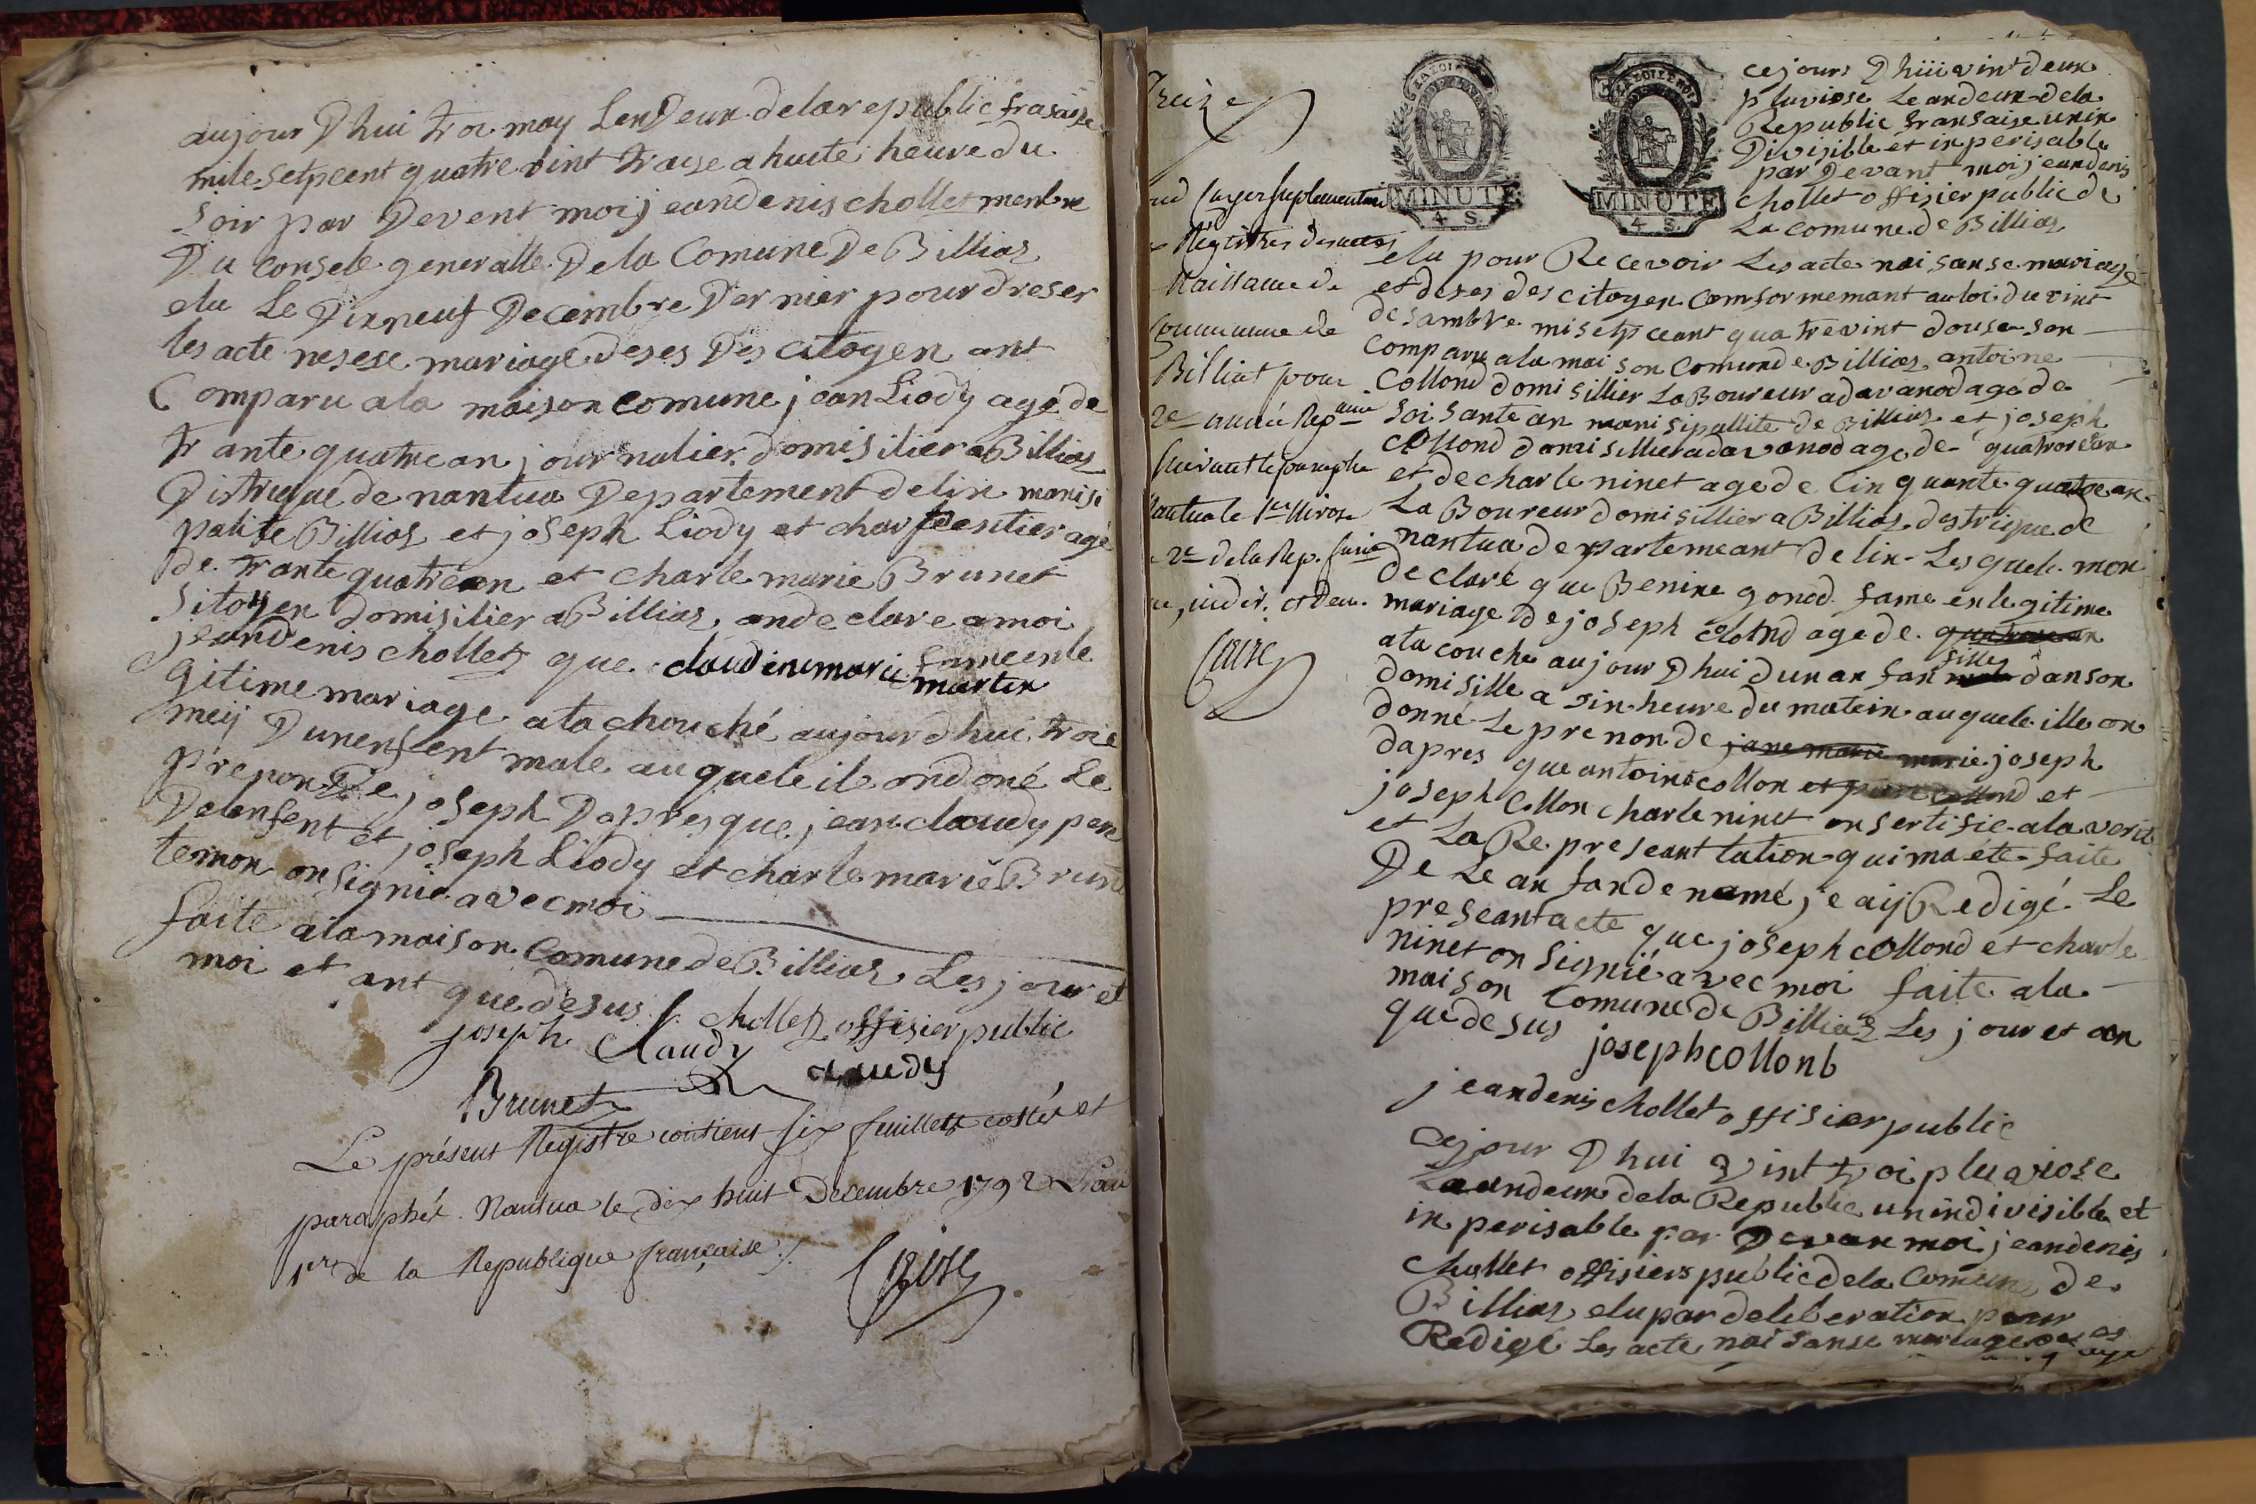 aujour Dhui troi may LenDeux delarepublic frasaise
mile setpcent quatre vint traise a huite heure du
Soir par Devent moij jeandenis chollet menbre
Du consele generalle Dela Comune De Billiaz
elu Le Dixneuf Decembre Dernier pour dreser
les acte nesese mariage deses Des citoyen ont
Comparu ala maison comune jean Liody agé de
trante quatre an journalier domisilier a Billiaz
Districqué de nantua Departement delin manisi
palite Billiaz et joseph Liody et charpentier agé
de trante quatre an et charle marie Brunet
Sitoyen domisilier a Billiaz, onde clare a moi
jeandenis chollet que claudine marie fame enle
martin
gitime mariage ata chouché aujourdhui troie
meij Dunenfent male auquele ile ondoné Le
prenon De joseph Dapresque jean claudy pere
Delenfent et joseph Liody et charle marie Brune
temon on signie avec moi
faite ala maison Comune de Billiaz Les jour et
moi et ant que desus chollet offisier public
joseph Claudy claudy
Brunet
Le présent Registre contient six feuillets cottés et
paraphés. Nantua le dix huit Decembre 1792 L'an
1er de la Republique française ./.
Treize
Cayer suplementaire
Régistres des actes
Naissance de
Commune de
Billiat pour
2e année Repaine
suivant le paraphe
Nantua le 1er Nivose
2e de la Rep. fune
indiv. et Deu.
LA LOI
MINUTE
4 S.
LA LOI ET LE ROI
MINUTE
4 S.
cejours Dhüi vint deux
pluviose Le andeux dela
Republic fransaise unin
Divisible et inperisable
par Devant moi jeandenis
chollet offisier public de
La comune de Billiaz
elu pour Recevoir Les acte naisanse mariage
et deses des citoyen comformemant auloi du vint
desambre misetpceant quatrevint douse son
comparu ala maison comunde Billiaz antoine
Collond domisillier LaBoureur adavanod agé de
soisante an manisipallite de Billiaz et joseph
collond domisillier adavanod age de quatorse an
et de charle ninet age de Cinquante quatre an
La Boureur domisillier a Billiaz destrique de
nantua departemeant delin Lesquele mon
declaré que Benine gonod fame enlegitime
mariage de joseph colond agede quatrose an
ata couche aujour Dhui dun anfan male fille danson
domisille a sin heure du matein auquele ille on
donné Le prenon de jane marie marie joseph
dapres que antoine collon et pierre Collond et
joseph Collon charle ninet onsertifie ala verite
et La Re preseant tation qui ma ete faite
De Le an fan denomé je aij Redigé Le
preseant acte que joseph collond et charle
ninet on signié avec moi faite ala
maison Comune de Billiaz Les jour et an
que desus
joseph collonb
jeandenis chollet offisier public
cejour Dhui vint troi pluviose
Laandeux dela Republic unindivisible et
inperisable par Devan moi jeandenis
chollet offisiers public dela Comune de
Billiaz elu par deliberation pour
Redigé Les acte naisanse mariage